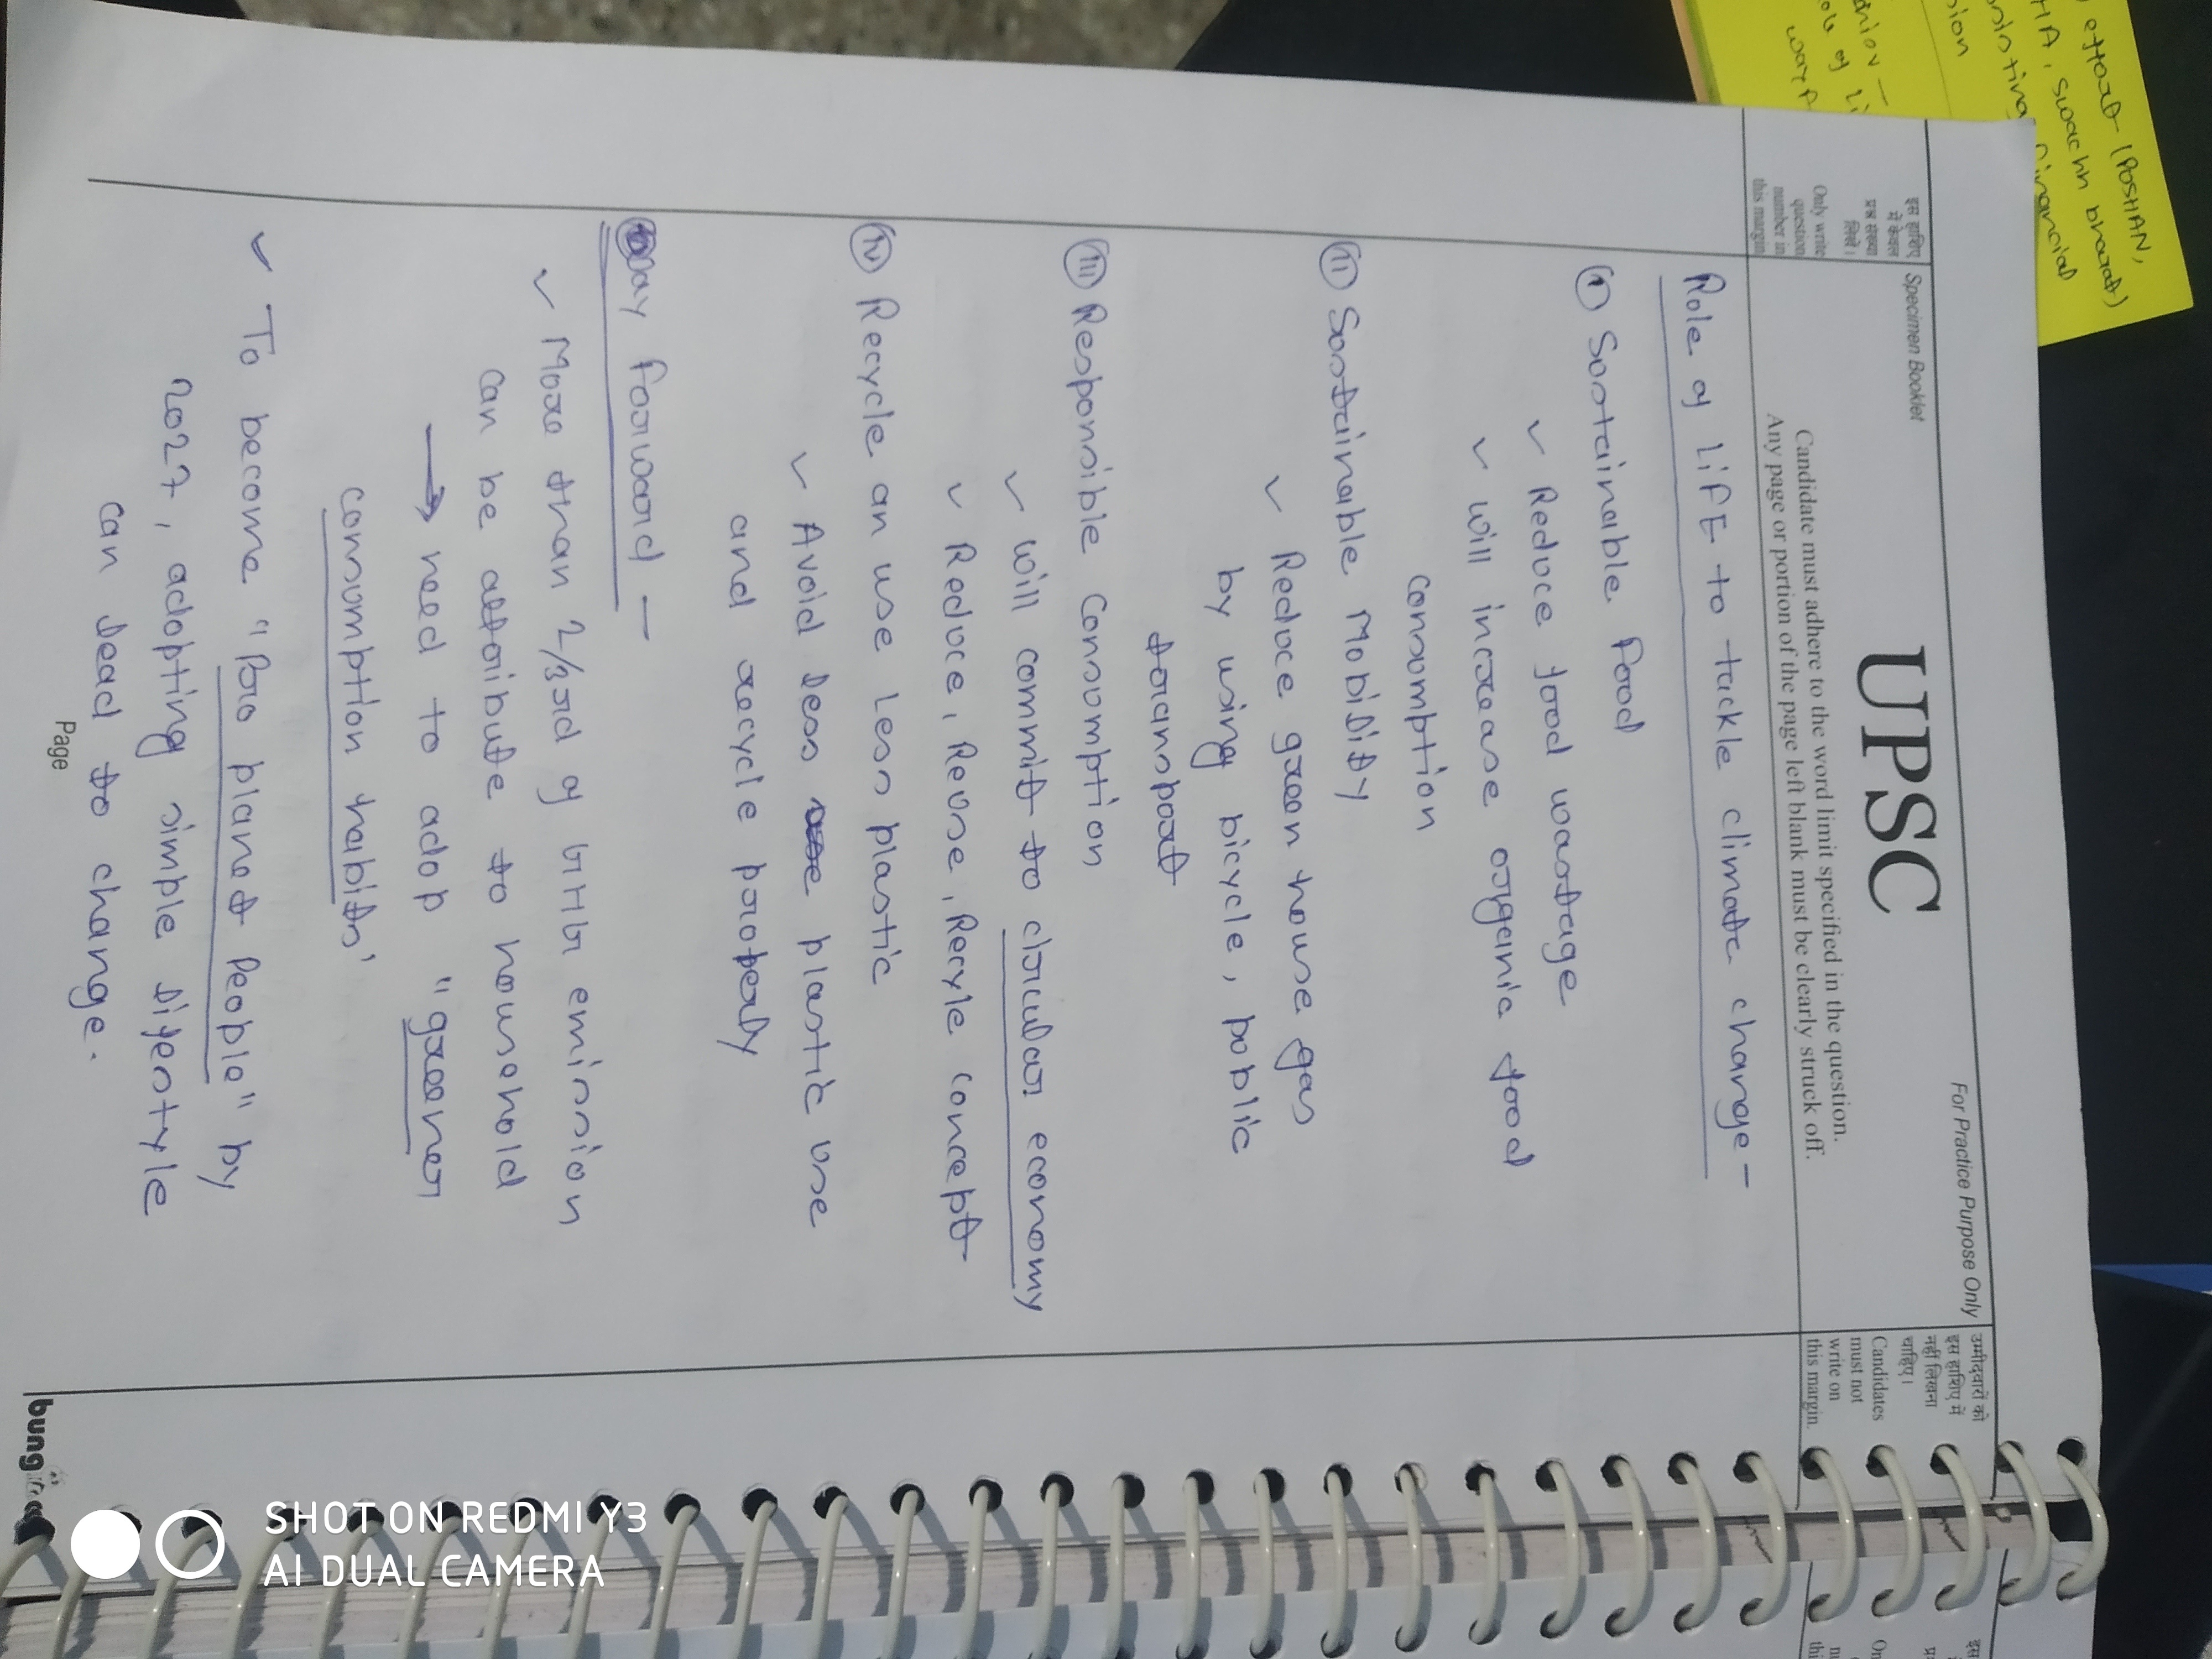 effort (POSHAN,
HA, Swachh bharat)
Financial
इस हाशिए
में केवल
प्रश्न संख्या
लिखें।
Only write
question
number in
this margin
Specimen Booklet
UPSC
For Practice Purpose Only
Candidate must adhere to the word limit specified in the question.
Any page or portion of the page left blank must be clearly struck off.
उम्मीदवारों को
इस हाशिए में
नहीं लिखना
चाहिए।
Candidates
must not
write on
this margin
Role of LiFE to tackle climate change -
(i) Sustainable Food
✓ Reduce food wastage
✓ will increase organic food
consumption
(ii) Sustainable Mobility
✓ Reduce green house gas
by using bicycle, public
transport
(iii) Responsible Consumption
✓ will commit to circular economy
✓ Reduce, Reuse, Recyle concept
(iv) Recycle an use less plastic
✓ Avoid less plastic use
and recycle properly
Way forward —
✓ More than 2/3rd of GHG emission
can be attribute to household
→ need to adop "greener
consumption habits'
✓ To become "Pro planet People" by
2027, adopting simple lifestyle
can lead to change.
Page
SHOT ON REDMI Y3
AI DUAL CAMERA